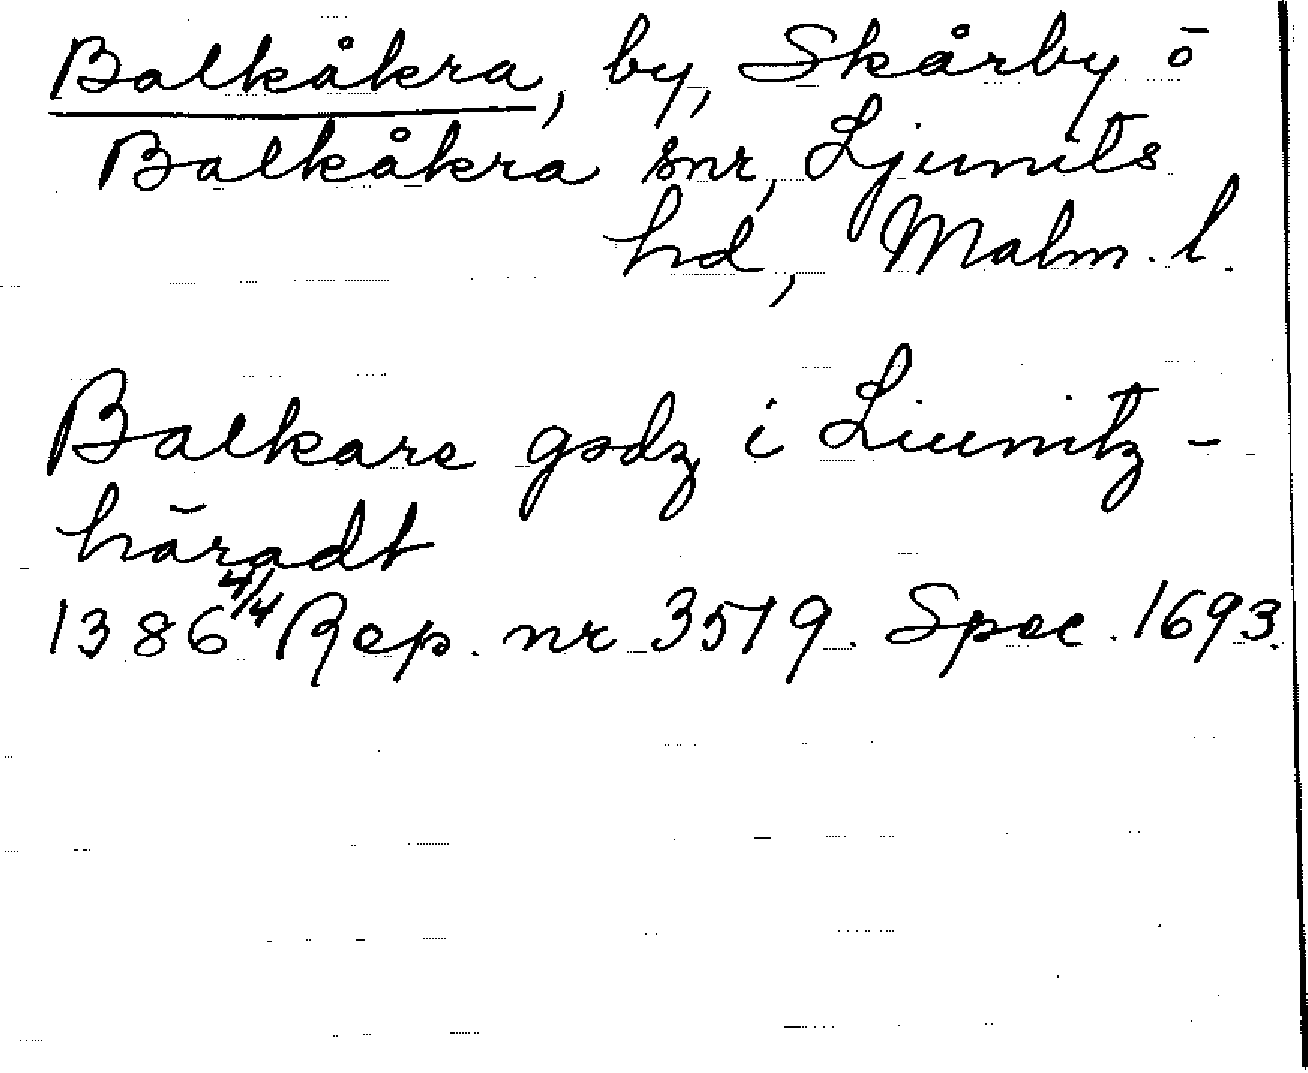 Balkåkra, by, Skårby o
Balkåkra snr, Ljunits
hd, Malm. l.
Balkare godz i Liunitz-
häradt
1386 4/4 Rep. nr 3519. Spec. 1693.